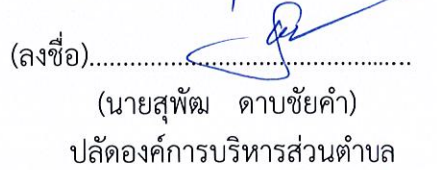 (ลงชื่อ)..................................................
(นายสุพัฒ ดาบชัยคำ)
ปลัดองค์การบริหารส่วนตำบล